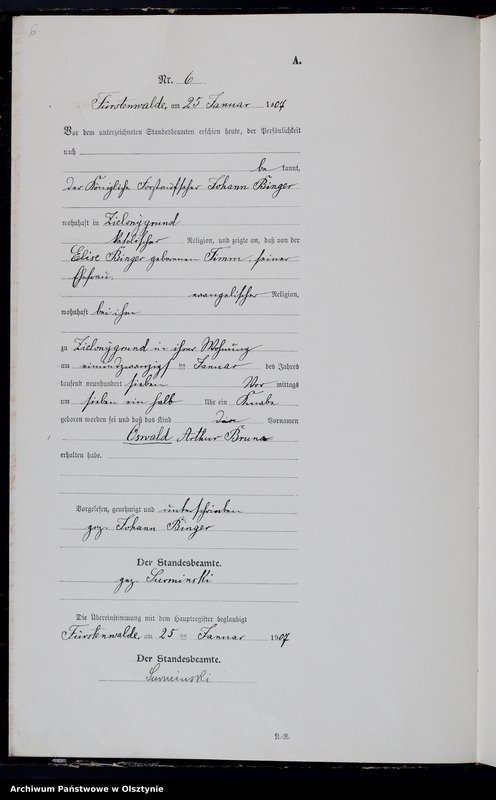 6
A.
Nr. 6
Fürstenwalde, am 25 Januar 1907
Vor dem unterzeichneten Standesbeamten erschien heute, der Persönlichkeit
nach
be kannt,
der Königliche Forstaufseher Johann Binger
wohnhaft in Zielonygrund
katolischer Religion, und zeigte an, daß von der
Elise Binger geborenen Timm, seiner
Ehefrau,
evangelischer Religion,
wohnhaft bei ihm
zu Zielonygrund in ihrer Wohnung
am einundzwanzigsten Januar des Jahres
tausend neunhundert sieben Vor mittags
um sieben ein halb Uhr ein Knabe
geboren worden sei und daß das Kind die Vornamen
Oswald Arthur Bruno
erhalten habe.
Vorgelesen, genehmigt und unterschrieben
gez. Johann Binger
Der Standesbeamte.
gez. Surminski
Die Übereinstimmung mit dem Hauptregister beglaubigt
Fürstenwalde, am 25 ten Januar 1907
Der Standesbeamte.
Surminski
Archiwum Państwowe w Olsztynie